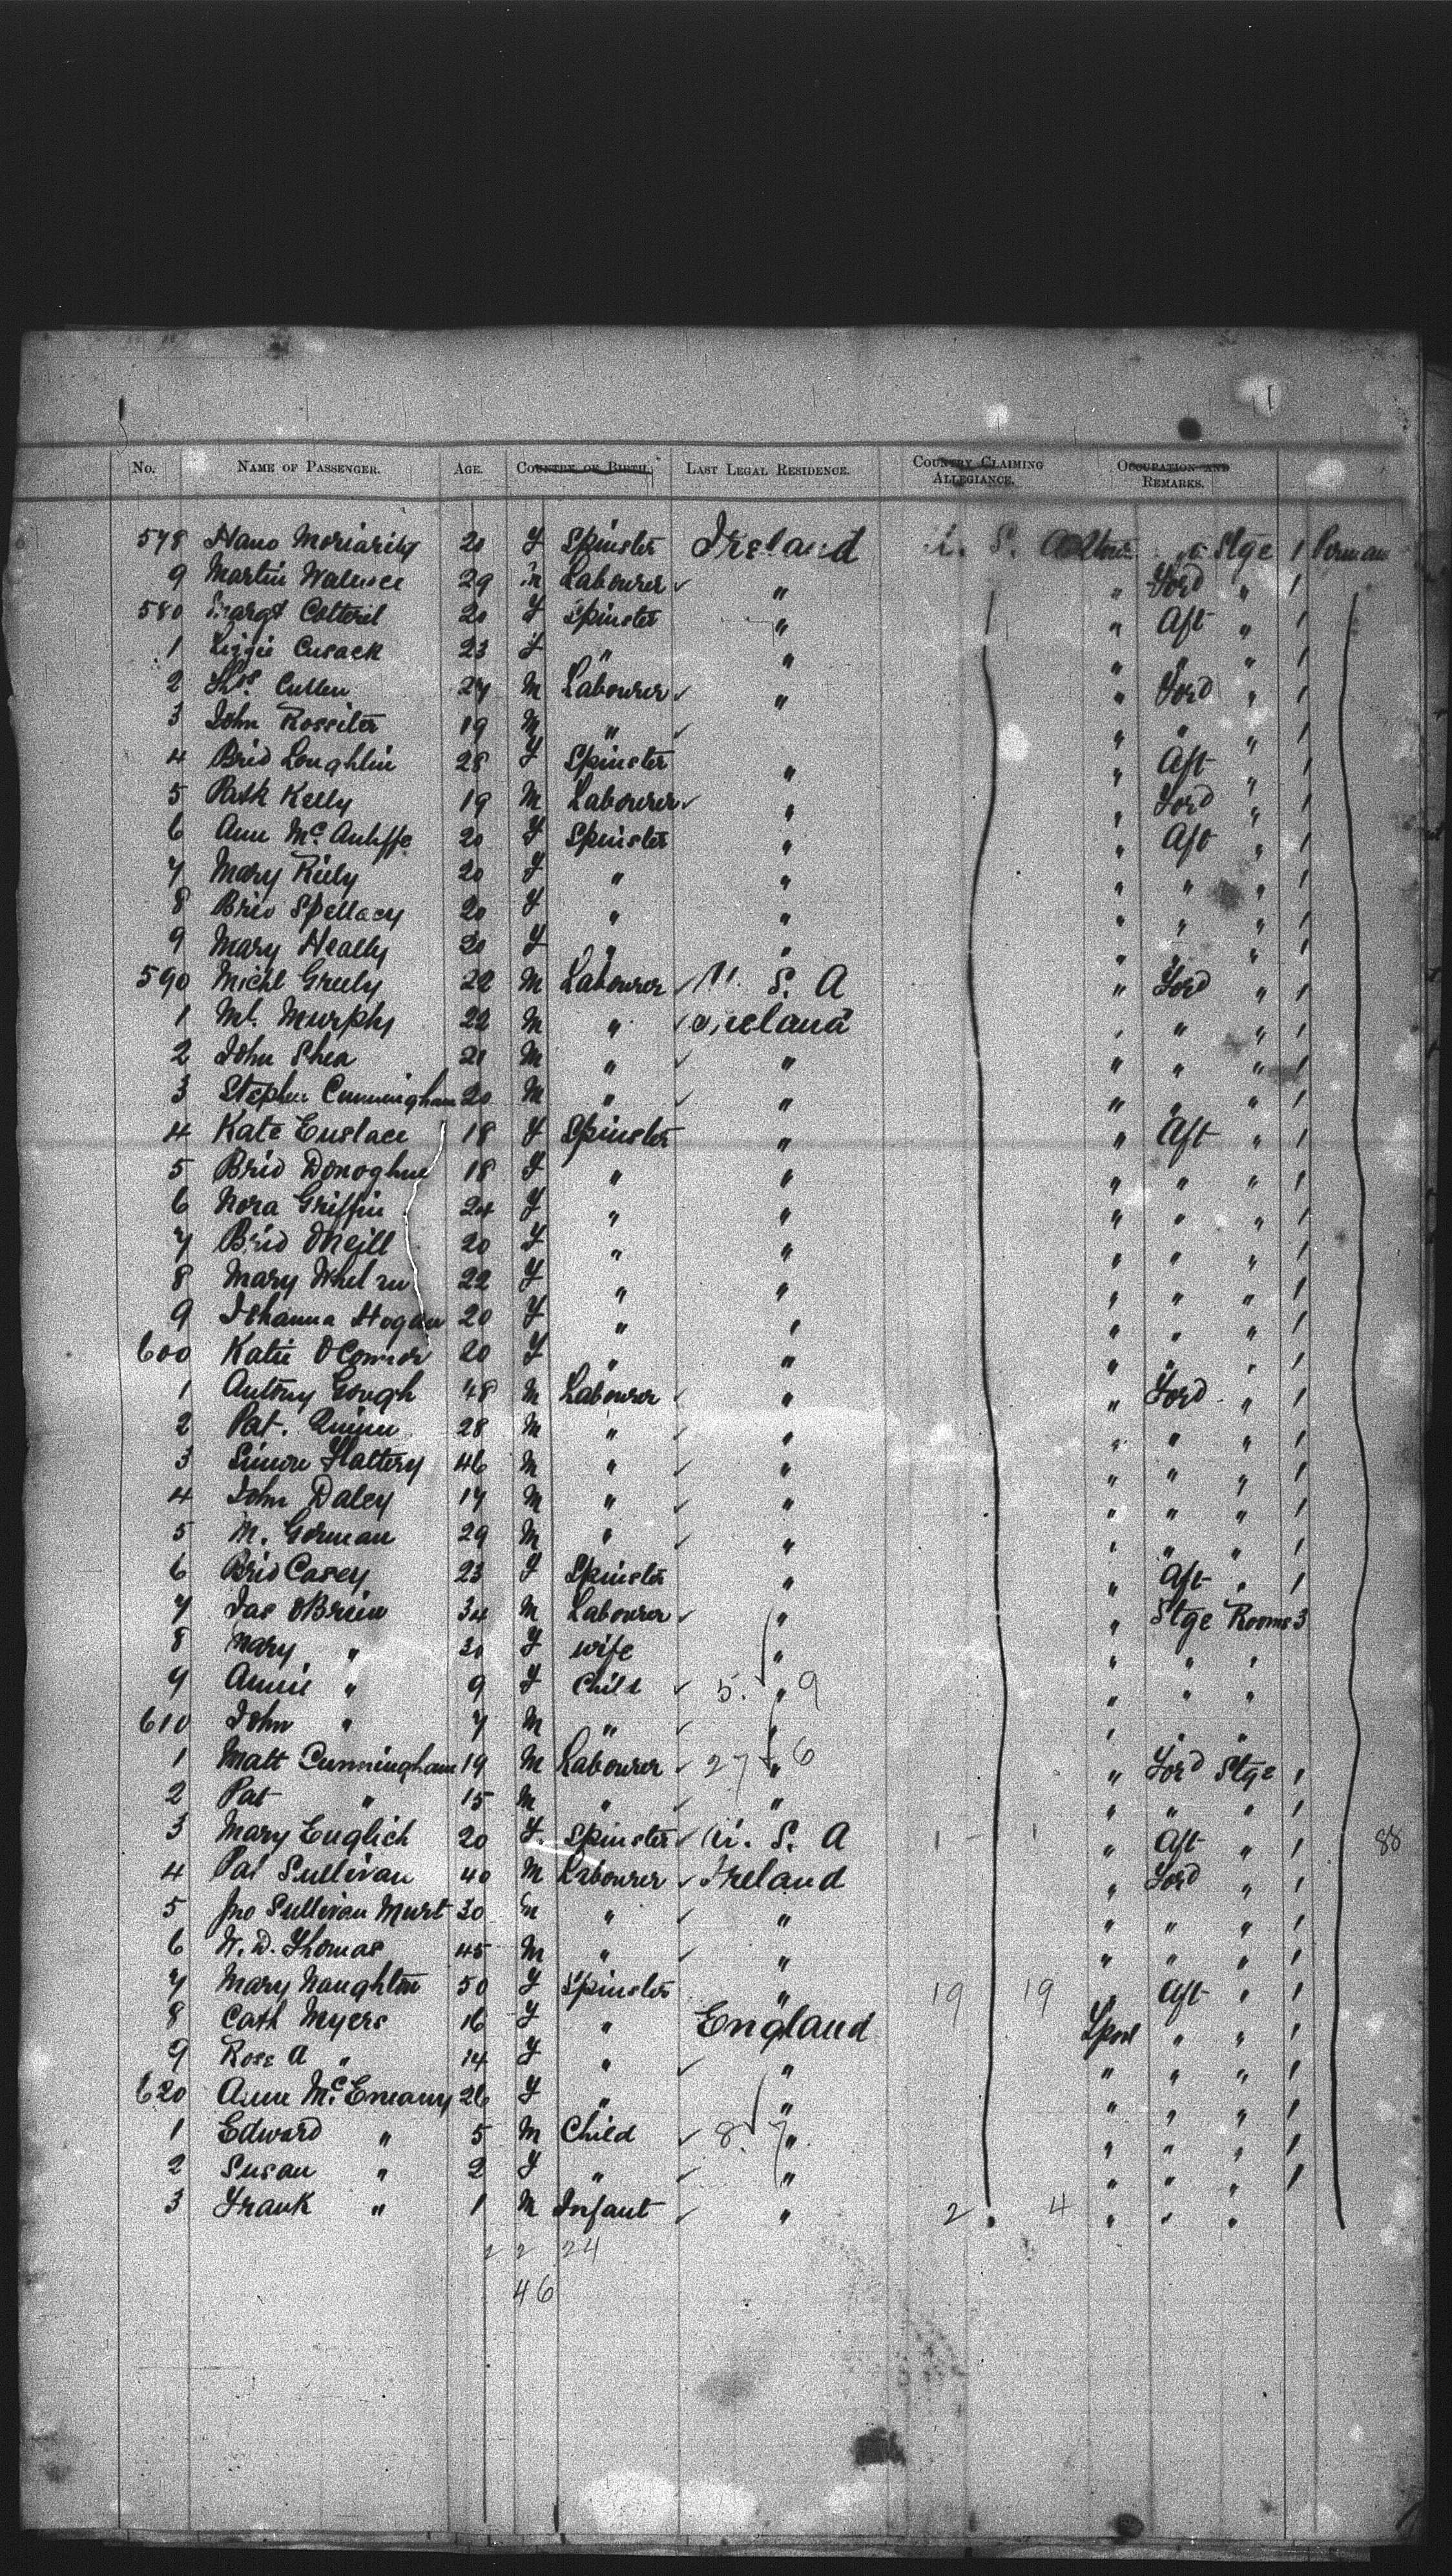 No. NAME OF PASSENGER. AGE. COUNTRY OF BIRTH. LAST LEGAL RESIDENCE. COUNTRY CLAIMING ALLEGIANCE. OCCUPATION AND REMARKS.
578 Hano Moriarity 20 F Spinster Ireland U. S. A Stge 1
9 Martin 29 M Labourer ✓ " " Ford " 1
580 Margt Cotteril 20 F Spinster " " Aft " 1
1 Lizzie Cusack 23 F " " " " " 1
2 Thos. Cullen 27 M Labourer ✓ " " Ford " 1
3 John Rossiter 19 M " ✓ " " " 1
4 Brid Loughlin 28 F Spinster " " Aft " 1
5 Patk Kelly 19 M Labourer ✓ " " Ford " 1
6 Ann McAuliffe 20 F Spinster " " Aft " 1
7 Mary Riely 20 F " " " " " 1
8 Brid Spellacy 20 F " " " " " 1
9 Mary Neally 20 F " " " " " 1
590 Michl Greely 22 M Labourer ✓ U. S. A " Ford " 1
1 Ml. Murphy 22 M " ✓ Ireland " " " 1
2 John Shea 21 M " ✓ " " " " 1
3 Stephen Cunningham 20 M " ✓ " " " " 1
4 Kate Eustace 18 F Spinster " " Aft " 1
5 Brid Donoghue 18 F " " " " " 1
6 Nora Griffin 24 F " " " " " 1
7 Brid ONeill 20 F " " " " " 1
8 Mary Whelan 22 F " " " " " 1
9 Johanna Hogan 20 F " " " " " 1
600 Katie OConnor 20 F " " " " " 1
1 Antony Gough 48 M Labourer ✓ " " Ford " 1
2 Pat. Quinn 28 M " ✓ " " " " 1
3 Simon Slattery 46 M " ✓ " " " " 1
4 John Daley 17 M " ✓ " " " " 1
5 M. Gorman 29 M " ✓ " " " "
6 Brid Casey 23 F Spinster " " Aft " 1
7 Jas OBrien 34 M Labourer ✓ " " Stge Rooms 3
8 Mary " 30 F wife " " " "
9 Annie " 9 F Child ✓ 5. " 9 " " "
610 John " 7 M " ✓ " " " "
1 Matt Cunningham 19 M Labourer ✓ 27 " 6 " Ford Stge 1
2 Pat " 15 M " ✓ " " " " 1
3 Mary English 20 F Spinster ✓ U. S. A 1 - 1 " Aft " 1 88
4 Pat Sullivan 40 M Labourer ✓ Ireland " Ford " 1
5 Jno Sullivan Murt 30 M " ✓ " " " " 1
6 W. D. Thomas 45 M " ✓ " " " " 1
7 Mary Naughton 50 F Spinster " 19 19 " Aft " 1
8 Cath Myers 16 F " England Lpool " " 1
9 Rose A " 14 F " ✓ " " " " 1
620 Ann McEneany 26 F " " " " " 1
1 Edward " 5 M Child ✓ 8. 7 " " " " 1
2 Susan " 2 F " ✓ " " " " 1
3 Frank " 1 M Infant ✓ " 2 4 " " "
22 24
46